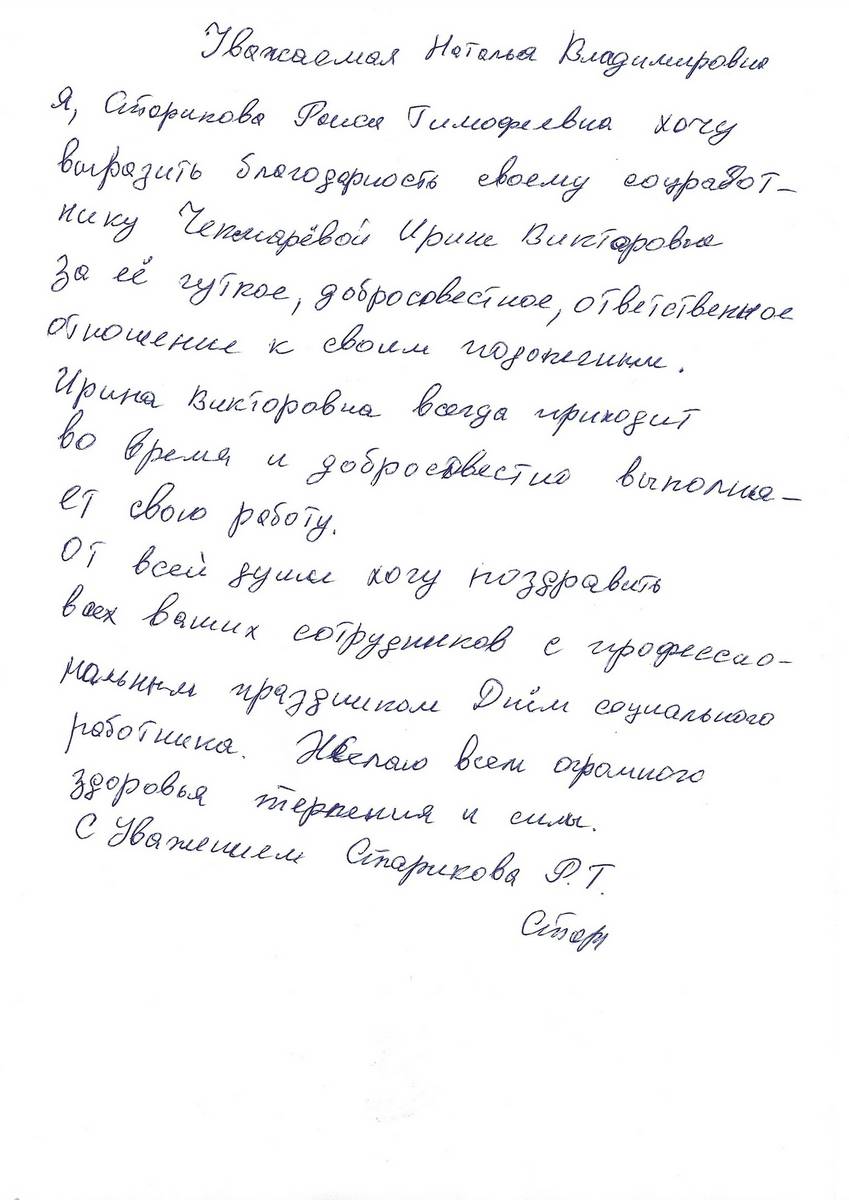 Уважаемая Наталья Владимировна
Я, Старикова Раиса Тимофеевна хочу
выразить благодарность своему соцработ-
нику Чекмарёвой Ирине Викторовне
за её чуткое, добросовестное, ответственное
отношение к своим подопечным.
Ирина Викторовна всегда приходит
во время и добросовестно выполня-
ет свою работу.
От всей души хочу поздравить
всех ваших сотрудников с профессио-
нальным праздником Днём социального
работника. Желаю всем огромного
здоровья терпения и силы.
С Уважением Старикова Р.Т.
Стар